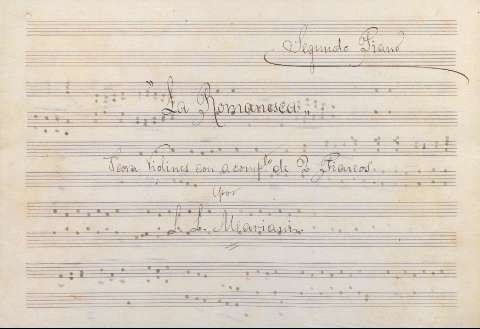 Segundo Piano
"La Romanesca"
Para Violines con acompto de 2 Pianos
por
L. L. Mariani